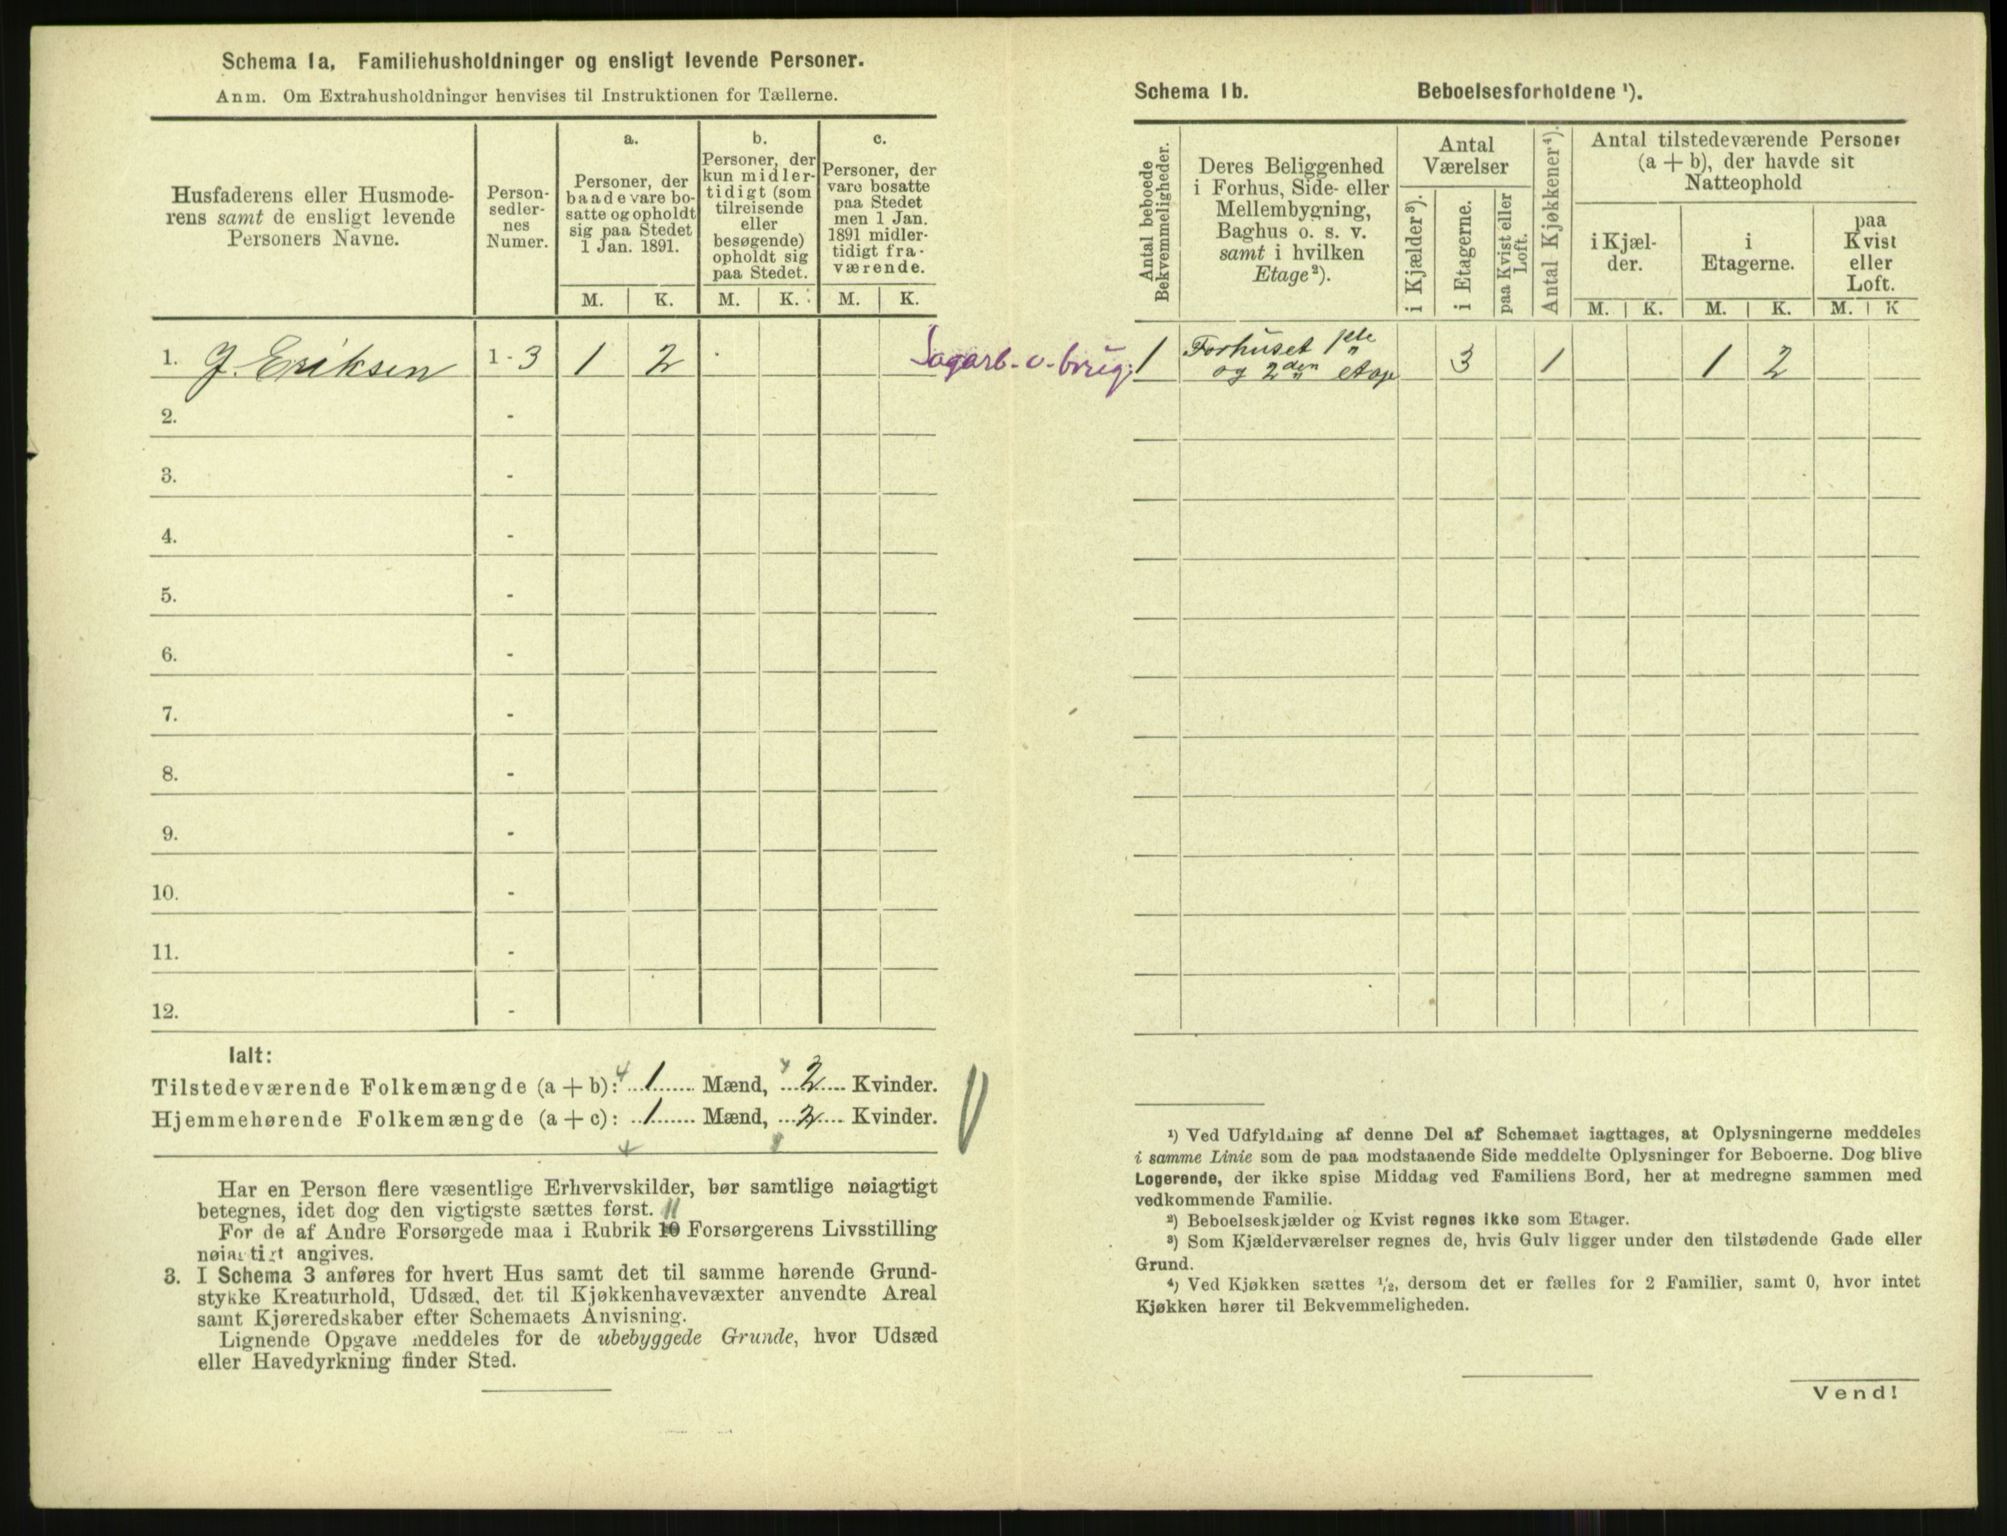 Schema 1a. Familiehusholdninger og ensligt levende Personer.
Anm. Om Extrahusholdninger henvises til Instruktionen for Tællerne.
Husfaderens eller Husmode-
rens samt de ensligt levende
Personers Navne.
Person-
sedler-
nes
Numer.
a.
Personer, der
baade vare bo-
satte og opholdt
sig paa Stedet
1 Jan. 1891.
b.
Personer, der
kun midler-
tidigt (som
tilreisende
eller
besøgende)
opholdt sig
paa Stedet.
c.
Personer, der
vare bosatte
paa Stedet
men 1 Jan.
1891 midler-
tidigt fra-
værende.
M. K. M. K. M. K.
1. J. Eriksen 1 - 3 1 2
2. -
3. -
4. -
5. -
6. -
7. -
8. -
9. -
10. -
11. -
12. -
Ialt:
Tilstedeværende Folkemængde (a + b): 1 Mænd, 2 Kvinder.
Hjemmehørende Folkemængde (a + c): 1 Mænd, 2 Kvinder.
Har en Person flere væsentlige Erhvervskilder, bør samtlige nøiagtigt
betegnes, idet dog den vigtigste sættes først. 11
For de af Andre Forsørgede maa i Rubrik 10 Forsørgerens Livsstilling
nøiagtigt angives.
3. I Schema 3 anføres for hvert Hus samt det til samme hørende Grund-
stykke Kreaturhold, Udsæd, det til Kjøkkenhavevæxter anvendte Areal
samt Kjøreredskaber efter Schemaets Anvisning.
Lignende Opgave meddeles for de ubebyggede Grunde, hvor Udsæd
eller Havedyrkning finder Sted.
Schema 1b. Beboelsesforholdene ¹).
Antal beboede
Bekvemmeligheder.
Deres Beliggenhed
i Forhus, Side- eller
Mellembygning,
Baghus o. s. v.
samt i hvilken
Etage ²).
Antal
Værelser
i Kjælder ³).
i Etagerne.
paa Kvist eller
Loft.
Antal Kjøkkener ⁴).
Antal tilstedeværende Personer
(a + b), der havde sit
Natteophold
i Kjæl-
der.
i
Etagerne.
paa
Kvist
eller
Loft.
M. K. M. K. M. K
Sagarb. o. brug.
1 Forhuset 1ste
og 2den etage 3 1 1 2
¹) Ved Udfyldning af denne Del af Schemaet iagttages, at Oplysningerne meddeles
i samme Linie som de paa modstaaende Side meddelte Oplysninger for Beboerne. Dog blive
Logerende, der ikke spise Middag ved Familiens Bord, her at medregne sammen med
vedkommende Familie.
²) Beboelseskjælder og Kvist regnes ikke som Etager.
³) Som Kjælderværelser regnes de, hvis Gulv ligger under den tilstødende Gade eller
Grund.
⁴) Ved Kjøkken sættes ½, dersom det er fælles for 2 Familier, samt 0, hvor intet
Kjøkken hører til Bekvemmeligheden.
Vend!